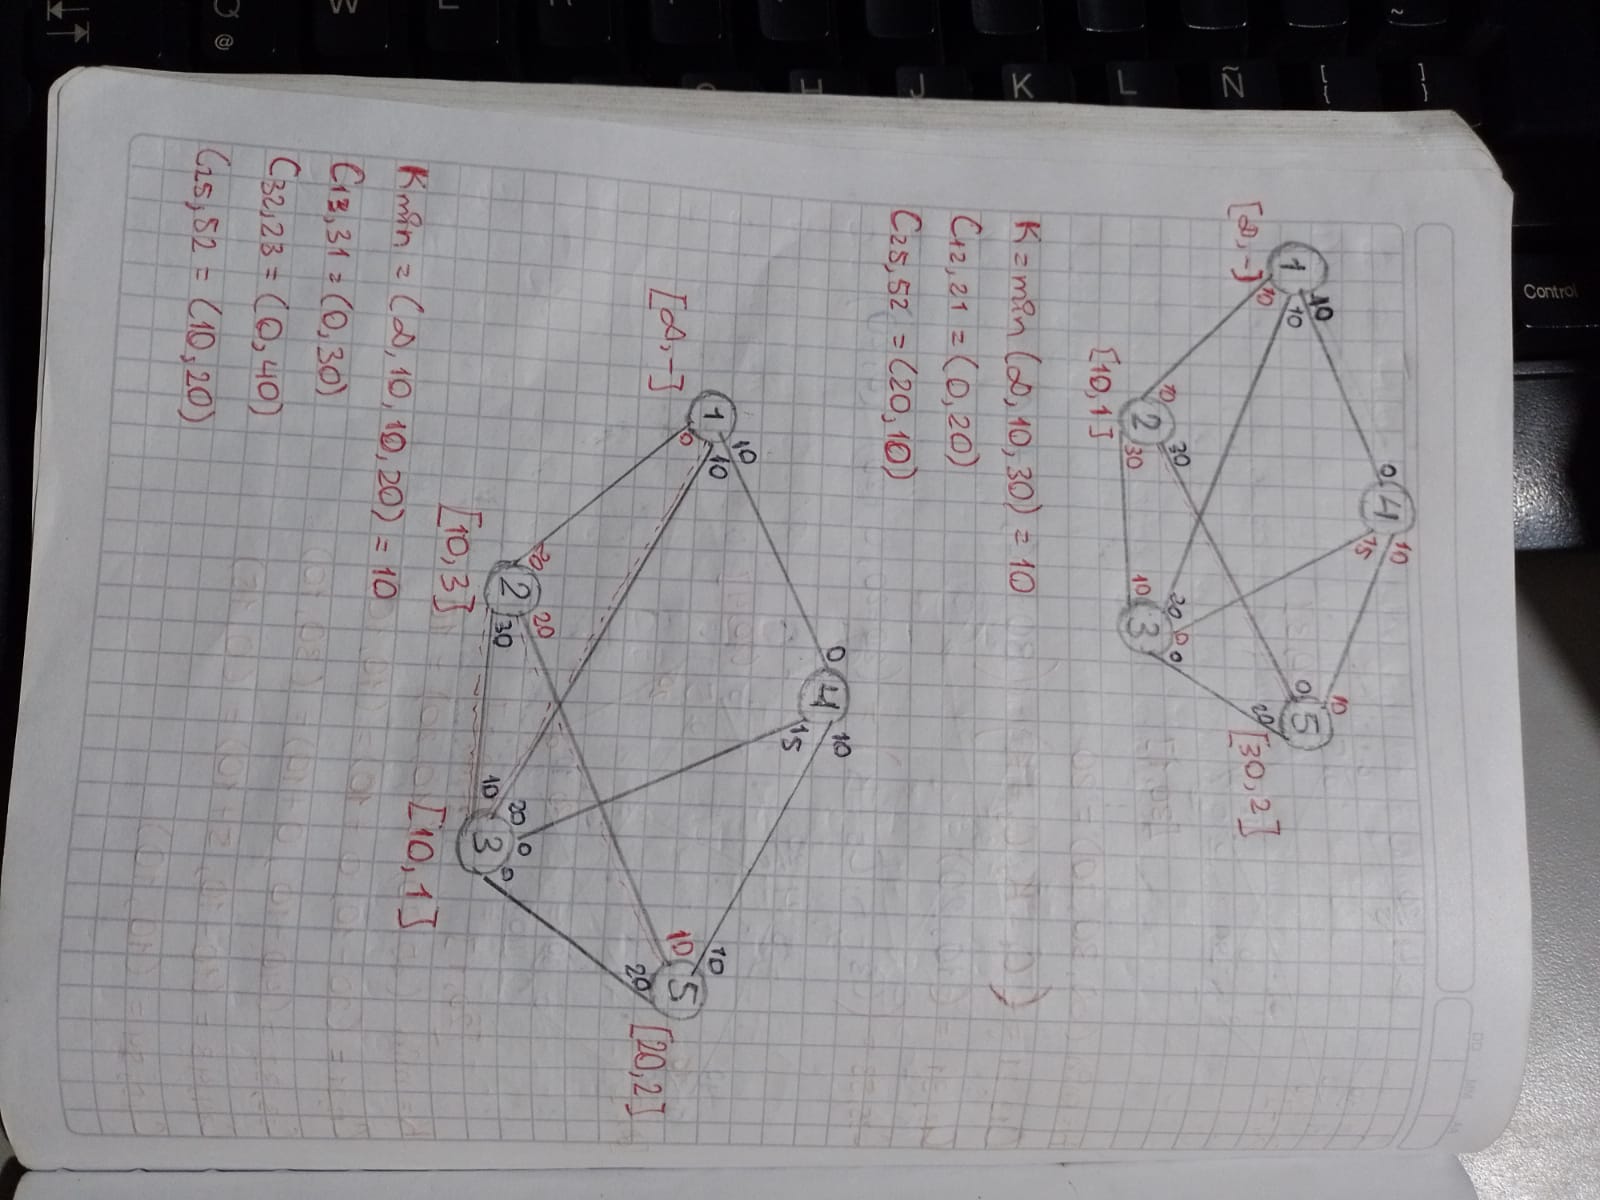 Control
DD MM AA
0 4 10
15
10
10
1 10
0 5
10
20
[∞,-]
[30,2]
10
30
20 0 0
2 30
10 3
[10,1]
K=min (∞,10,30) = 10
C12,21 = (0,20)
C25,52 = (20,10)
0 4 10
15
10
1 10
0
10
10 5
20
[∞,-]
[20,2]
20
20
2 30
20 0 0
10 3
[10,3]
[10,1]
Kmin = (∞,10,10,20) = 10
C13,31 = (0,30)
C32,23 = (0,40)
C25,52 = (10,20)
Ñ
L
K
J
H
W
Q
@